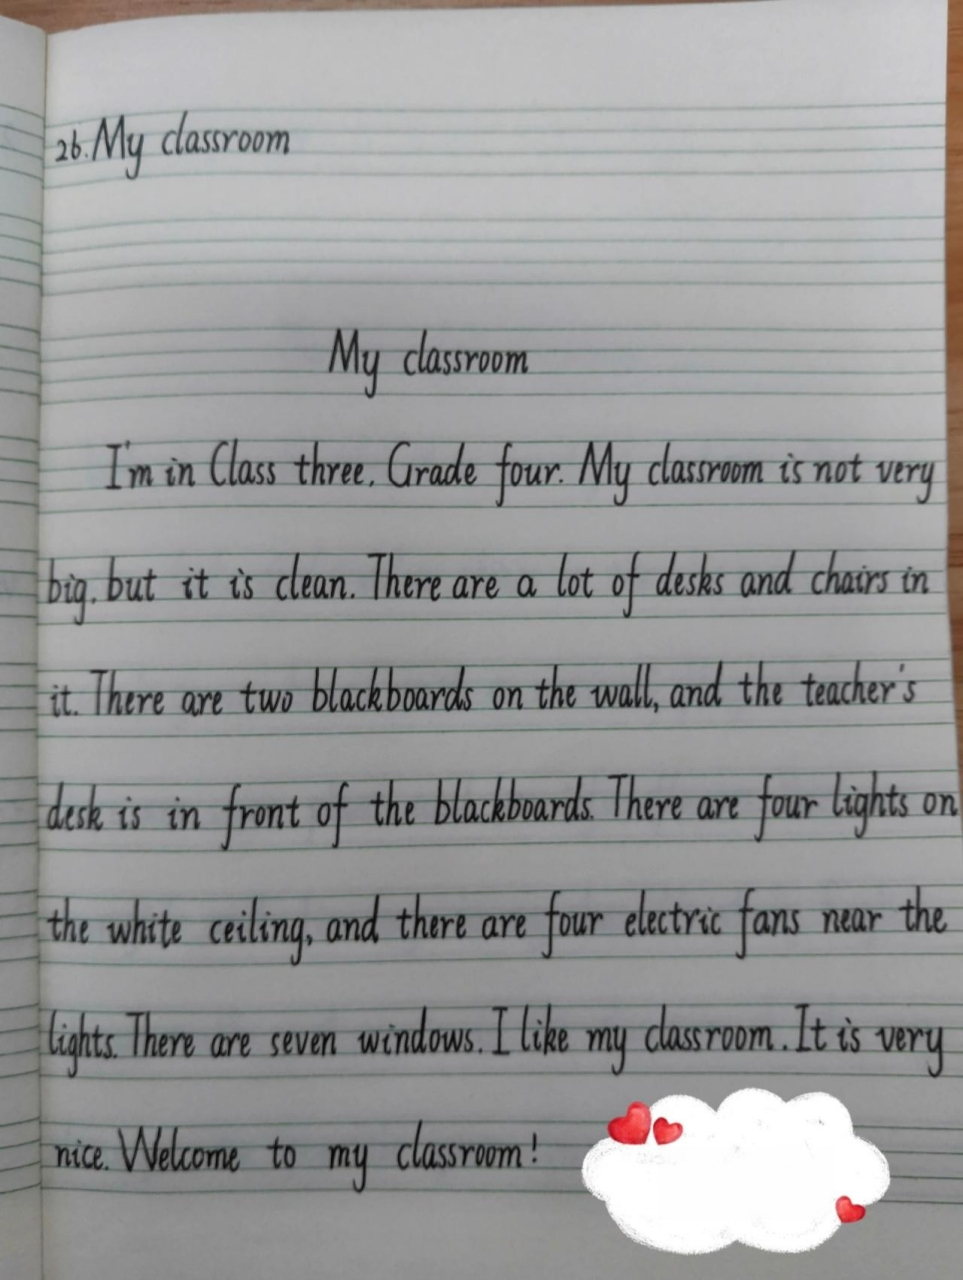 26. My classroom
My classroom
I'm in Class three, Grade four. My classroom is not very
big, but it is clean. There are a lot of desks and chairs in
it. There are two blackboards on the wall, and the teacher's
desk is in front of the blackboards. There are four lights on
the white ceiling, and there are four electric fans near the
lights. There are seven windows. I like my classroom. It is very
nice. Welcome to my classroom!